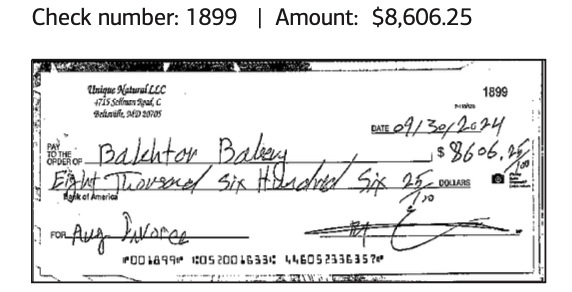 Check number: 1899 | Amount: $8,606.25
Unique Natural LLC
4715 Sellman Road, C
Beltsville, MD 20705
1899
DATE 09/30/2024
PAY TO THE ORDER OF Bakhtor Bakery $8606.25/100
Eight Thousand Six Hundred Six 25/100 DOLLARS
Bank of America
FOR Aug Invoice
⑈001899⑈ ⑆052001633⑆ 446052336357⑈